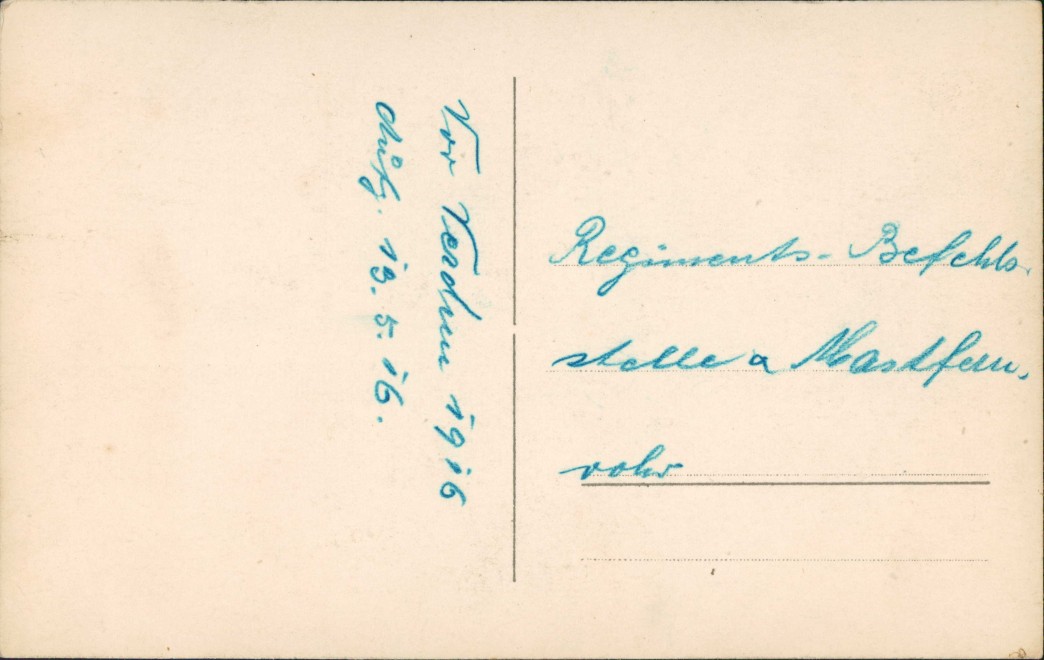 Vor Verdun 1916
Aufg. 13.5.16.
Regiments-Befehls-
stelle a Mastfern-
rohr